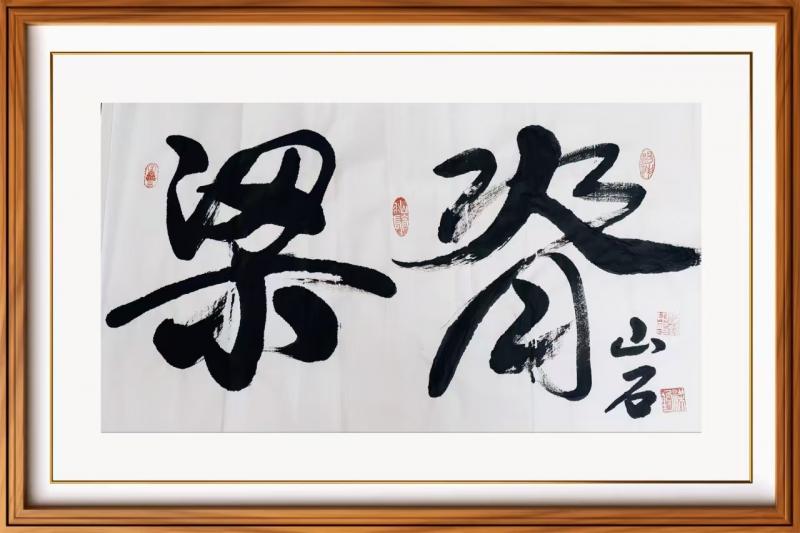 脊梁
山石